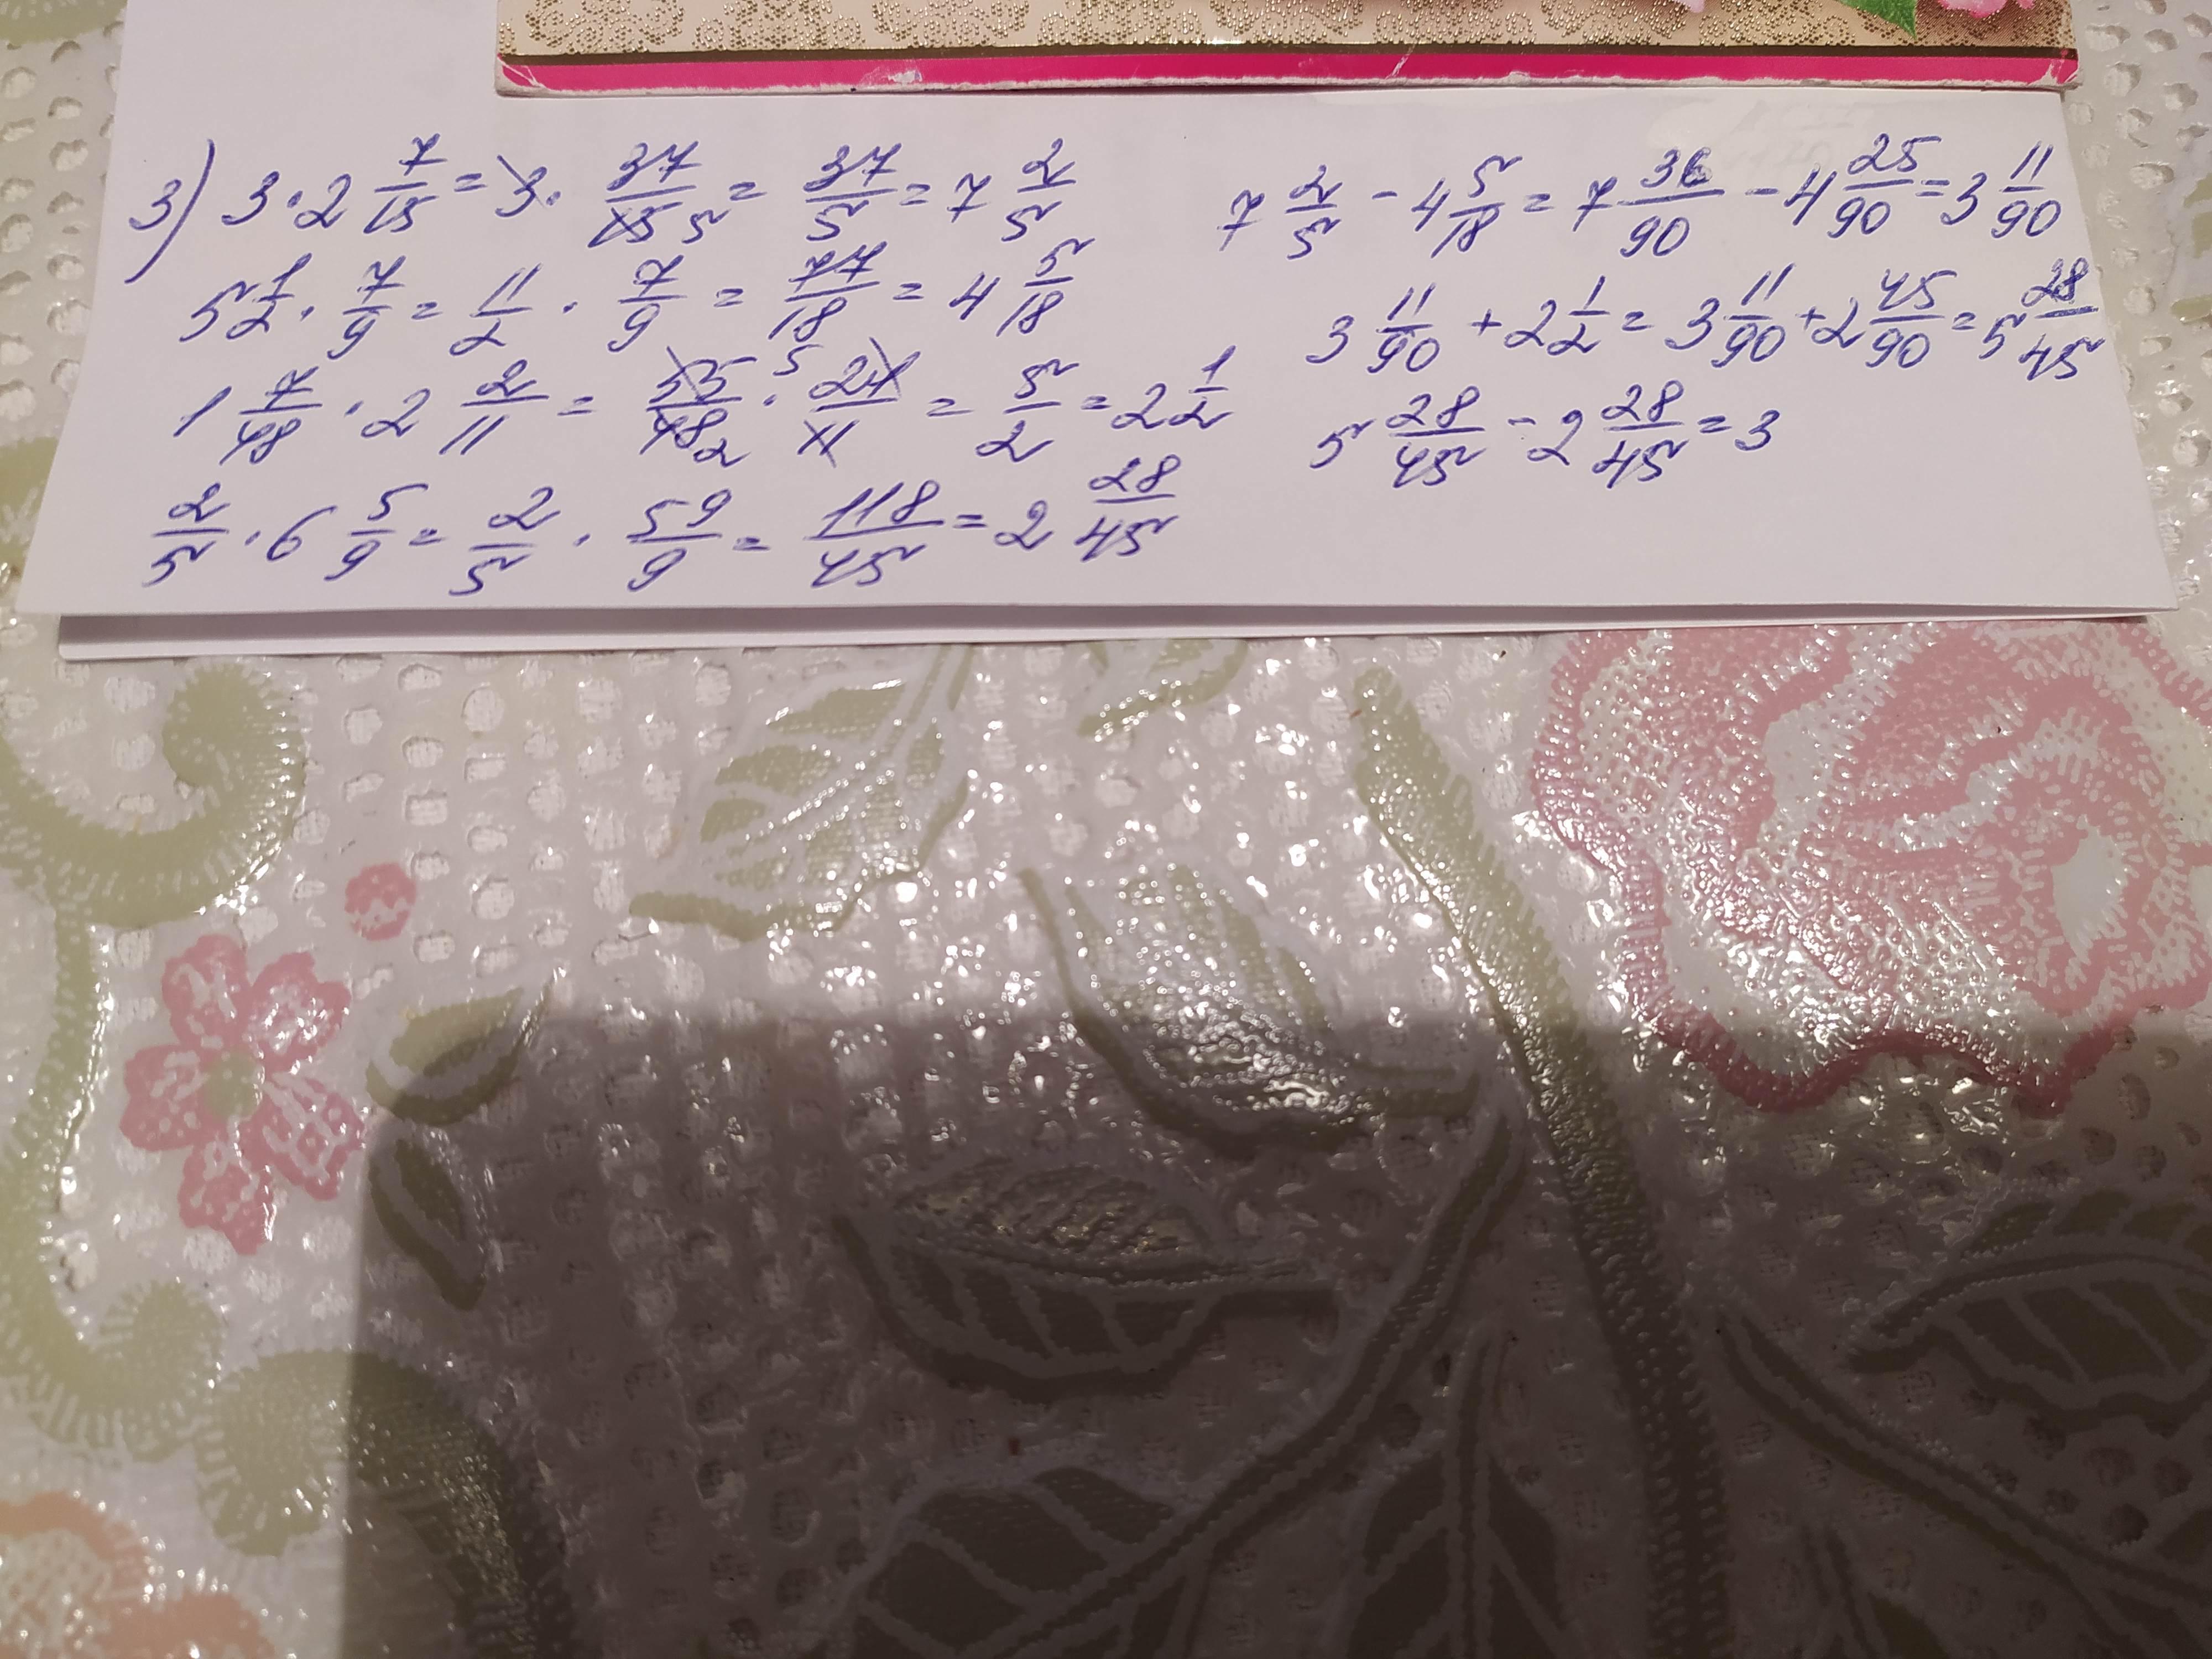 3) 3·2 7/15 = 3· 37/15 5 = 37/5 = 7 2/5
5 1/2 · 7/9 = 11/2 · 7/9 = 77/18 = 4 5/18
1 7/48 · 2 2/11 = 55/48 2 · 5 24/11 = 5/2 = 2 1/2
2/5 · 6 5/9 = 2/5 · 59/9 = 118/45 = 2 28/45
7 2/5 - 4 5/18 = 7 36/90 - 4 25/90 = 3 11/90
3 11/90 + 2 1/2 = 3 11/90 + 2 45/90 = 5 28/45
5 28/45 - 2 28/45 = 3